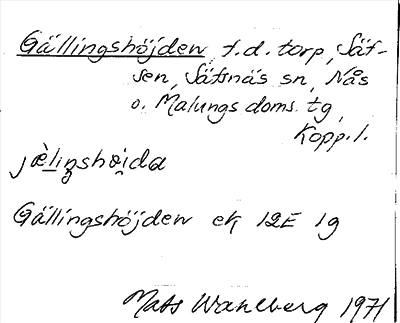 Gällingshöjden, f.d. torp, Säf-
sen, Säfsnäs sn, Nås
o. Malungs doms. tg,
Kopp. l.
jæ̀liŋshɵi̯da
Gällingshöjden ek 12E 1g
Mats Wahlberg 1971